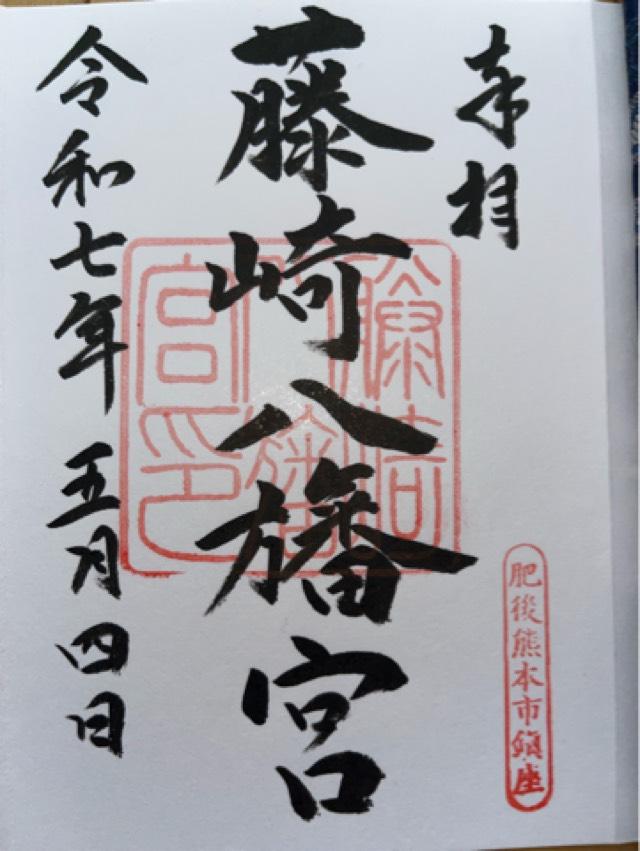 奉拝
藤崎八旛宮
藤崎八旛宮印
令和七年五月四日
肥後熊本市鎮座